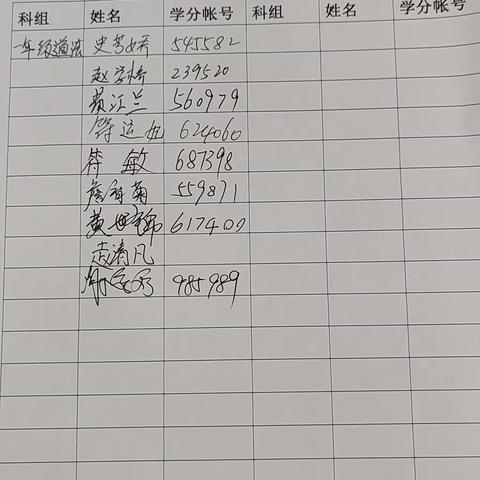 科组 姓名 学分帐号 科组 姓名 学分帐号
一年级道法 史芳妍 545582
赵学婷 239520
黄江兰 560979
符运姐 624060
符敏 687398
詹 菊 559871
黄 锦 617400
赵清凡
985989